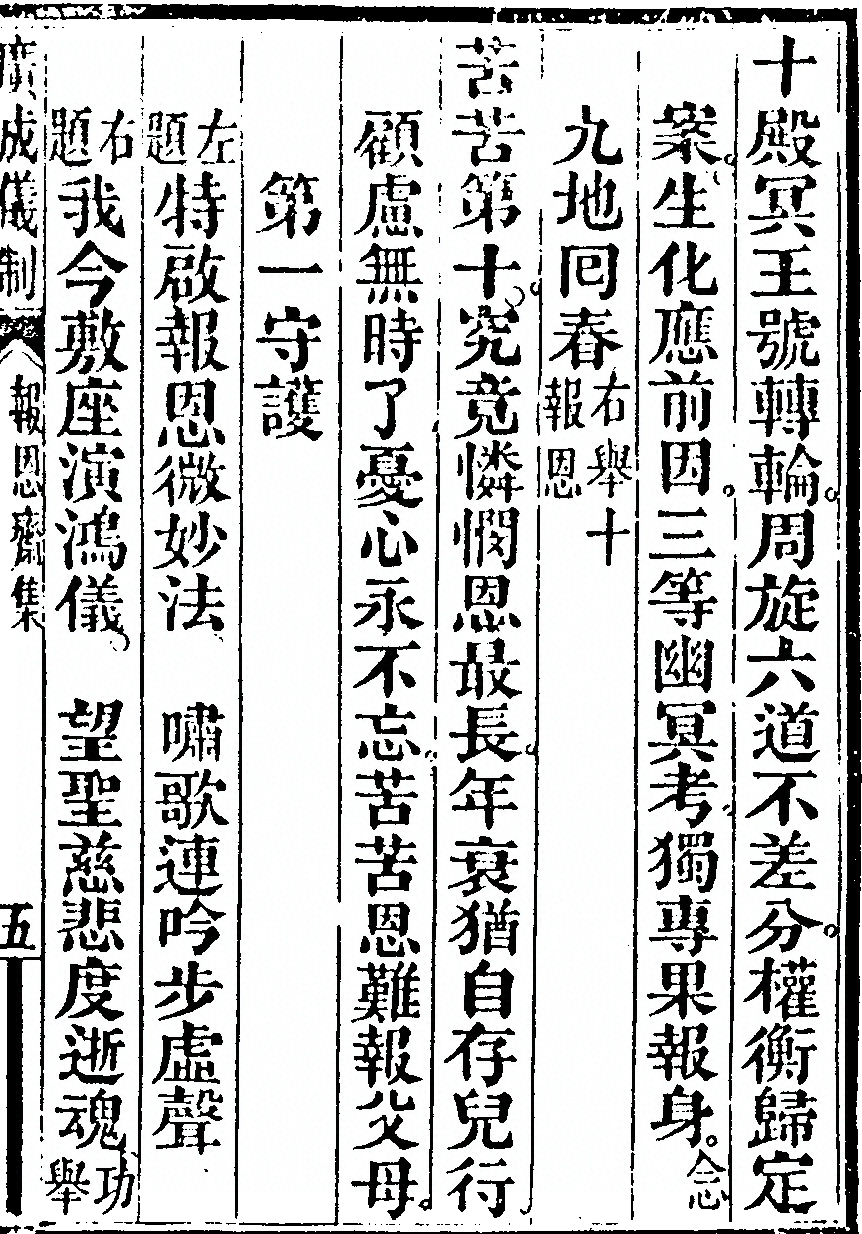 十殿冥王號轉輪。周旋六道不差分。權衡歸定
案。生化應前因。三等幽冥考。獨專果報身。念
九地回春右舉十報恩
苦苦第十。究竟憐憫恩最長。年衰猶自存兒行
顧慮無時了憂心永不忘。苦苦恩難報父母。
第一守護
左題特啟報恩微妙法　嘯歌連吟步虛聲
右題我今敷座演鴻儀　望聖慈悲度逝魂功舉
廣成儀制　報恩齋集　五